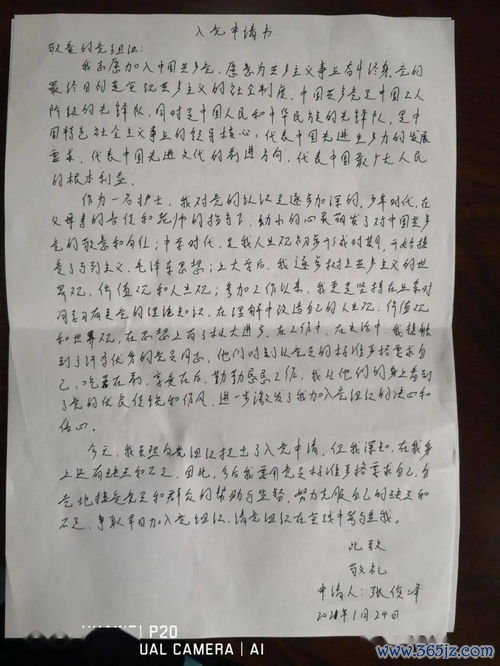 入党申请书
敬爱的党组织：
我志愿加入中国共产党，愿意为共产主义事业奋斗终身。党的
最终目的是实现共产主义的社会制度。中国共产党是中国工人
阶级的先锋队，同时是中国人民和中华民族的先锋队，是中
国特色社会主义事业的领导核心，代表中国先进生产力的发展
要求，代表中国先进文化的前进方向，代表中国最广大人民
的根本利益。
作为一名护士，我对党的认识是逐步加深的。少年时代，在
父母亲的责任和老师的指导下，幼小的心灵萌发了对中国共产
党的敬意和向往；中学时代，是我人生观初步形成时期，开始接
受了马列主义、毛泽东思想；上大学后，我逐步树立共产主义的世
界观、价值观和人生观；参加工作以来，我更是坚持在业余时
间学习有关党的理论知识，在理解中改造自己的人生观、价值观
和世界观，在思想上有了极大进步。在工作中，在生活中，我接触
到了许多优秀的党员同志，他们时刻以党员的标准严格要求自
己，吃苦在前，享受在后，勤勤恳恳工作，我从他们的身上看到
了党的优良传统和作风，进一步激发了我加入党组织的决心和
信心。
今天，我虽然向党组织提出了入党申请，但我深知，在我身
上还有缺点和不足，因此，今后我要用党员标准严格要求自己，自
觉地接受党员和群众的帮助与监督，努力克服自己的缺点和
不足，争取早日加入党组织。请党组织在实践中考验我。
此致
敬礼
申请人：张俊峰
2021年1月24日
HUAWEI P20
UAL CAMERA | AI
www.365jz.com